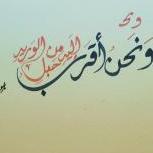 ونحن أقرب
إليه من حبل الوريد